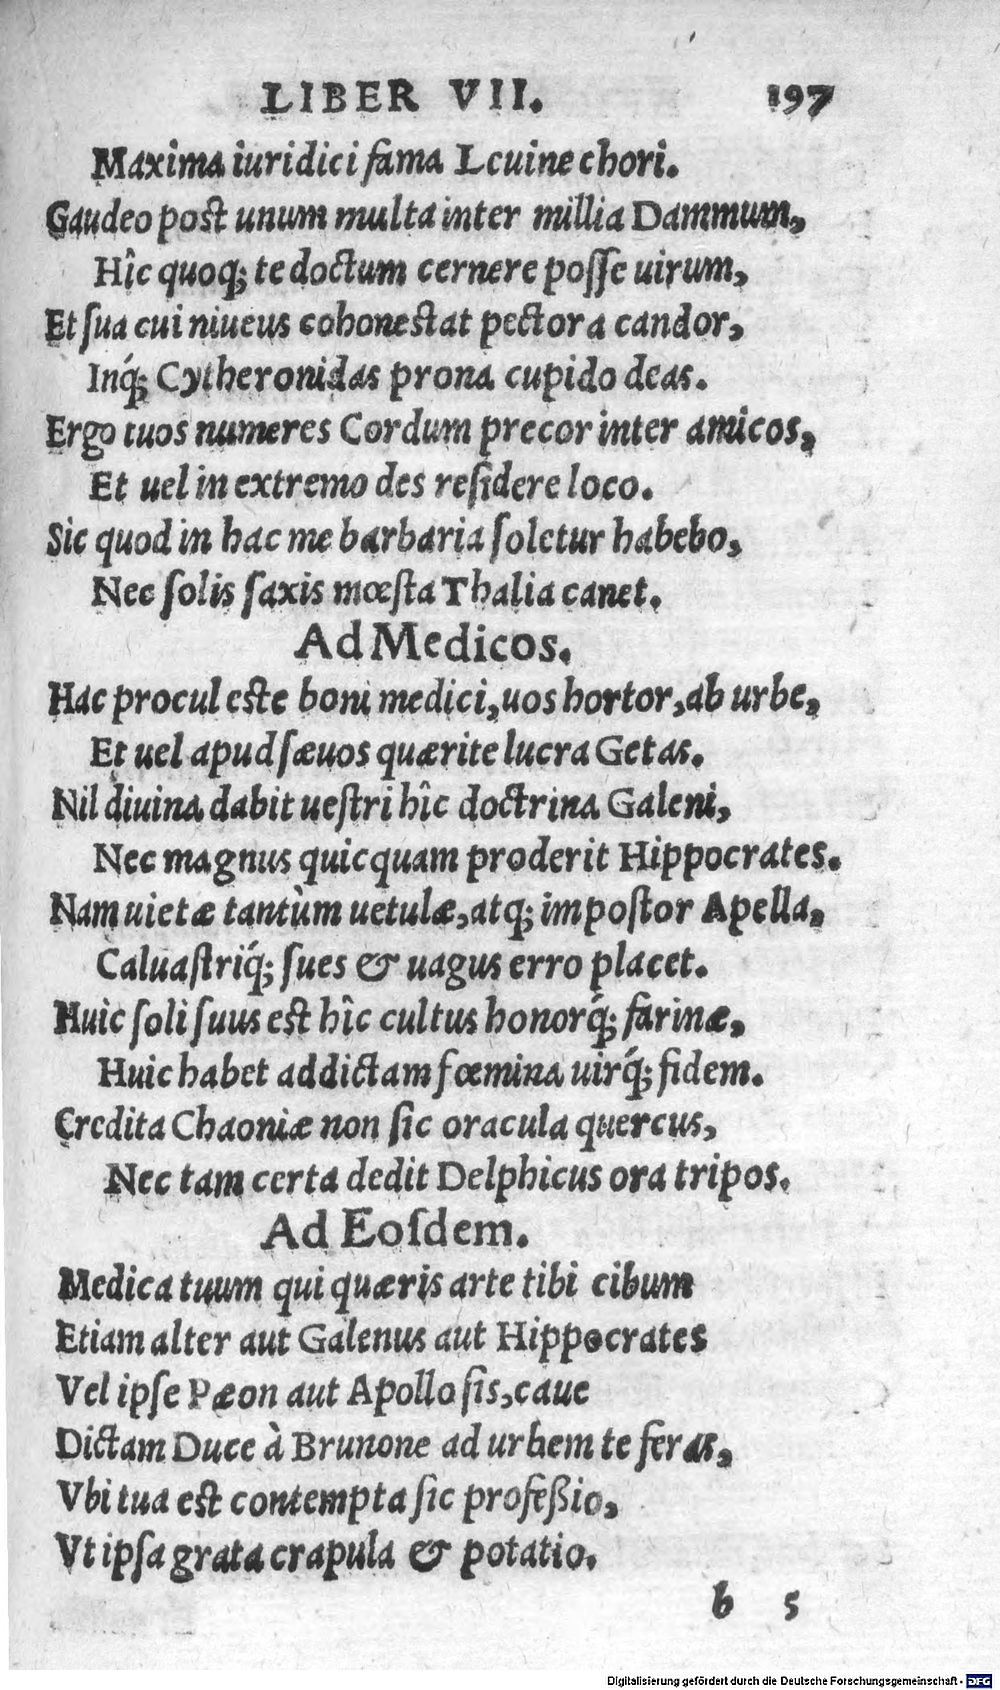 LIBER VII. 197
Maxima iuridici fama Leuine chori.
Gaudeo post unum multa inter millia Dammum,
Hîc quoq; te doctum cernere posſe uirum,
Et ſua cui niueus cohonestat pectora candor,
Inq́; Cytheronidas prona cupido deas.
Ergo tuos numeres Cordum precor inter amicos,
Et uel in extremo des reſidere loco.
Sic quod in hac me barbaria ſoletur habebo,
Nec ſolis ſaxis mœſta Thalia canet.
Ad Medicos.
Hac procul este boni medici, uos hortor, ab urbe,
Et uel apud ſæuos quærite lucra Getas.
Nil diuina dabit ueſtri hîc doctrina Galeni,
Nec magnus quicquam proderit Hippocrates.
Nam uietæ tantùm uetulæ, atq; impoſtor Apella,
Caluaſtriq́; ſues & uagus erro placet.
Huic ſoli ſuus est hîc cultus honorq́; farinæ,
Huic habet addictam fœmina uirq́; fidem.
Credita Chaoniæ non ſic oracula quercus,
Nec tam certa dedit Delphicus ora tripos.
Ad Eoſdem.
Medica tuum qui quæris arte tibi cibum
Etiam alter aut Galenus aut Hippocrates
Vel ipſe Pæon aut Apollo ſis, caue
Dictam Duce à Brunone ad urbem te feras,
Vbi tua est contempta ſic profeßio,
Vt ipſa grata crapula & potatio.
b 5
Digitalisierung gefördert durch die Deutsche Forschungsgemeinschaft - DFG